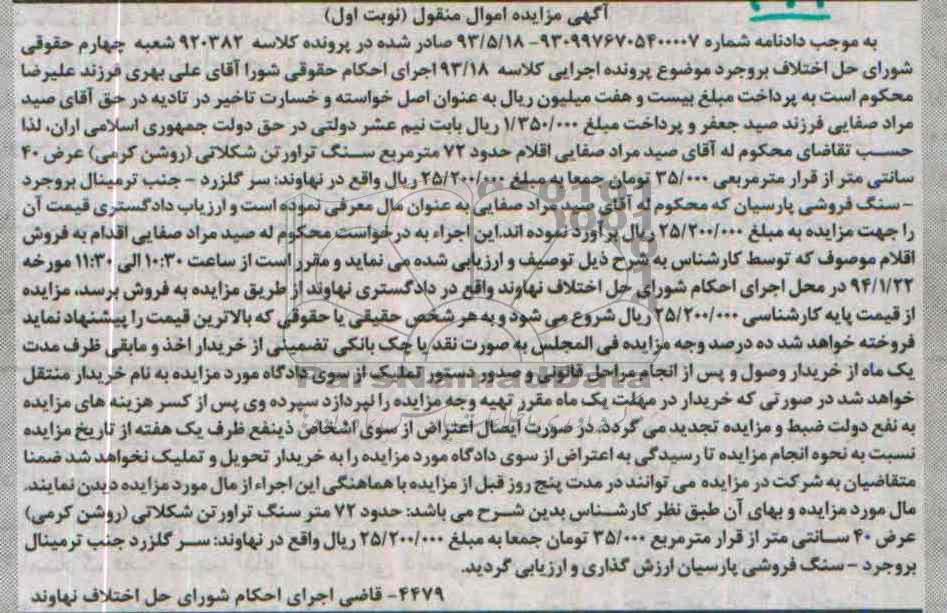 آگهی مزایده اموال منقول (نوبت اول)
به موجب دادنامه شماره ۹۳۰۹۹۷۶۷۰۵۴۰۰۰۰۷- ۹۳/۵/۱۸ صادر شده در پرونده کلاسه ۹۲۰۳۸۲ شعبه چهارم حقوقی
شورای حل اختلاف بروجرد موضوع پرونده اجرایی کلاسه ۹۳/۱۸ اجرای احکام حقوقی شورا آقای علی بهری فرزند علیرضا
محکوم است به پرداخت مبلغ بیست و هفت میلیون ریال به عنوان اصل خواسته و خسارت تاخیر در تادیه در حق آقای صید
مراد صفایی فرزند صید جعفر و پرداخت مبلغ ۱/۳۵۰/۰۰۰ ریال بابت نیم عشر دولتی در حق دولت جمهوری اسلامی اران، لذا
حسب تقاضای محکوم له آقای صید مراد صفایی اقلام حدود ۷۲ مترمربع سنگ تراورتن شکلاتی (روشن کرمی) عرض ۴۰
سانتی متر از قرار مترمربعی ۳۵/۰۰۰ تومان جمعا به مبلغ ۲۵/۲۰۰/۰۰۰ ریال واقع در نهاوند: سر گلزرد - جنب ترمینال بروجرد
- سنگ فروشی پارسیان که محکوم له آقای صید مراد صفایی به عنوان مال معرفی نموده است و ارزیاب دادگستری قیمت آن
را جهت مزایده به مبلغ ۲۵/۲۰۰/۰۰۰ ریال برآورد نموده اند.این اجراء به درخواست محکوم له صید مراد صفایی اقدام به فروش
اقلام موصوف که توسط کارشناس به شرح ذیل توصیف و ارزیابی شده می نماید و مقرر است از ساعت ۱۰:۳۰ الی ۱۱:۳۰ مورخه
۹۴/۱/۲۲ در محل اجرای احکام شورای حل اختلاف نهاوند واقع در دادگستری نهاوند از طریق مزایده به فروش برسد، مزایده
از قیمت پایه کارشناسی ۲۵/۲۰۰/۰۰۰ ریال شروع می شود و به هر شخص حقیقی یا حقوقی که بالاترین قیمت را پیشنهاد نماید
فروخته خواهد شد ده درصد وجه مزایده فی المجلس به صورت نقد یا چک بانکی تضمینی از خریدار اخذ و مابقی ظرف مدت
یک ماه از خریدار وصول و پس از انجام مراحل قانونی و صدور دستور تملیک از سوی دادگاه مورد مزایده به نام خریدار منتقل
خواهد شد در صورتی که خریدار در مهلت یک ماه مقرر تهیه وجه مزایده را نپردازد سپرده وی پس از کسر هزینه های مزایده
به نفع دولت ضبط و مزایده تجدید می گردد.در صورت ایصال اعتراض از سوی اشخاص ذینفع ظرف یک هفته از تاریخ مزایده
نسبت به نحوه انجام مزایده تا رسیدگی به اعتراض از سوی دادگاه مورد مزایده را به خریدار تحویل و تملیک نخواهد شد ضمنا
متقاضیان به شرکت در مزایده می توانند در مدت پنج روز قبل از مزایده با هماهنگی این اجراء از مال مورد مزایده دیدن نمایند.
مال مورد مزایده و بهای آن طبق نظر کارشناس بدین شرح می باشد: حدود ۷۲ متر سنگ تراورتن شکلاتی (روشن کرمی)
عرض ۴۰ سانتی متر از قرار مترمربع ۳۵/۰۰۰ تومان جمعا به مبلغ ۲۵/۲۰۰/۰۰۰ ریال واقع در نهاوند: سر گلزرد جنب ترمینال
بروجرد - سنگ فروشی پارسیان ارزش گذاری و ارزیابی گردید.
۴۴۷۹- قاضی اجرای احکام شورای حل اختلاف نهاوند
ParsNamadData